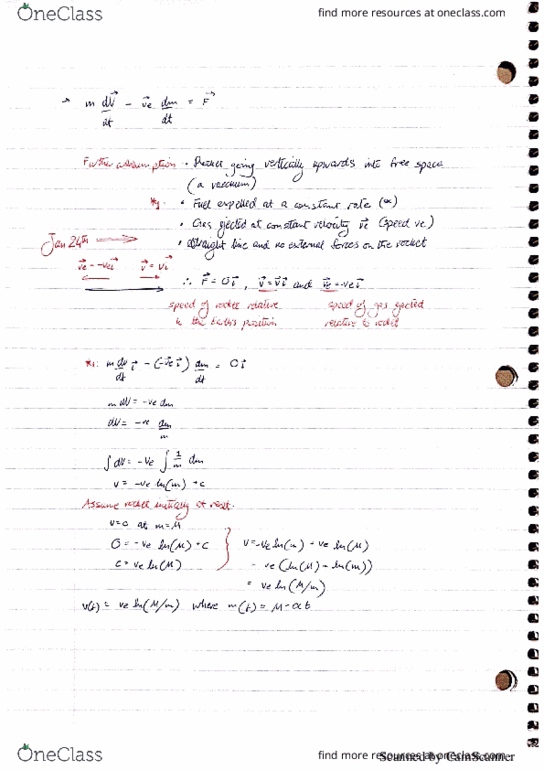 OneClass
find more resources at oneclass.com
→ m dV⃗/dt - v⃗e dm/dt = F⃗
Further assumption • Rocket going vertically upwards into free space
(a vacuum)
*1: • Fuel expelled at a constant rate (α)
• Gas ejected at constant velocity v⃗e (speed ve)
Jan 24th • Straight line and no external forces on the rocket
v⃗e = -vei⃗ v⃗ = vi⃗
∴ F⃗ = 0i⃗, v⃗ = vi⃗ and v⃗e = -vei⃗
speed of rocket relative speed of gas ejected
to the Earth's position relative to rocket
*1: m dv/dt i⃗ - (-vei⃗) dm/dt = 0i⃗
m dV = -ve dm
dV = -ve dm/m
∫dV = -ve ∫ 1/m dm
v = -ve ln(m) + c
Assume rocket initially at rest.
v=0 at m=M
0 = -ve ln(M) + c v = -ve ln(m) + ve ln(M)
c = ve ln(M) = ve (ln(M) - ln(m))
= ve ln(M/m)
v(t) = ve ln(M/m) where m(t) = M - αt
OneClass
find more resources at oneclass.com
Scanned by CamScanner